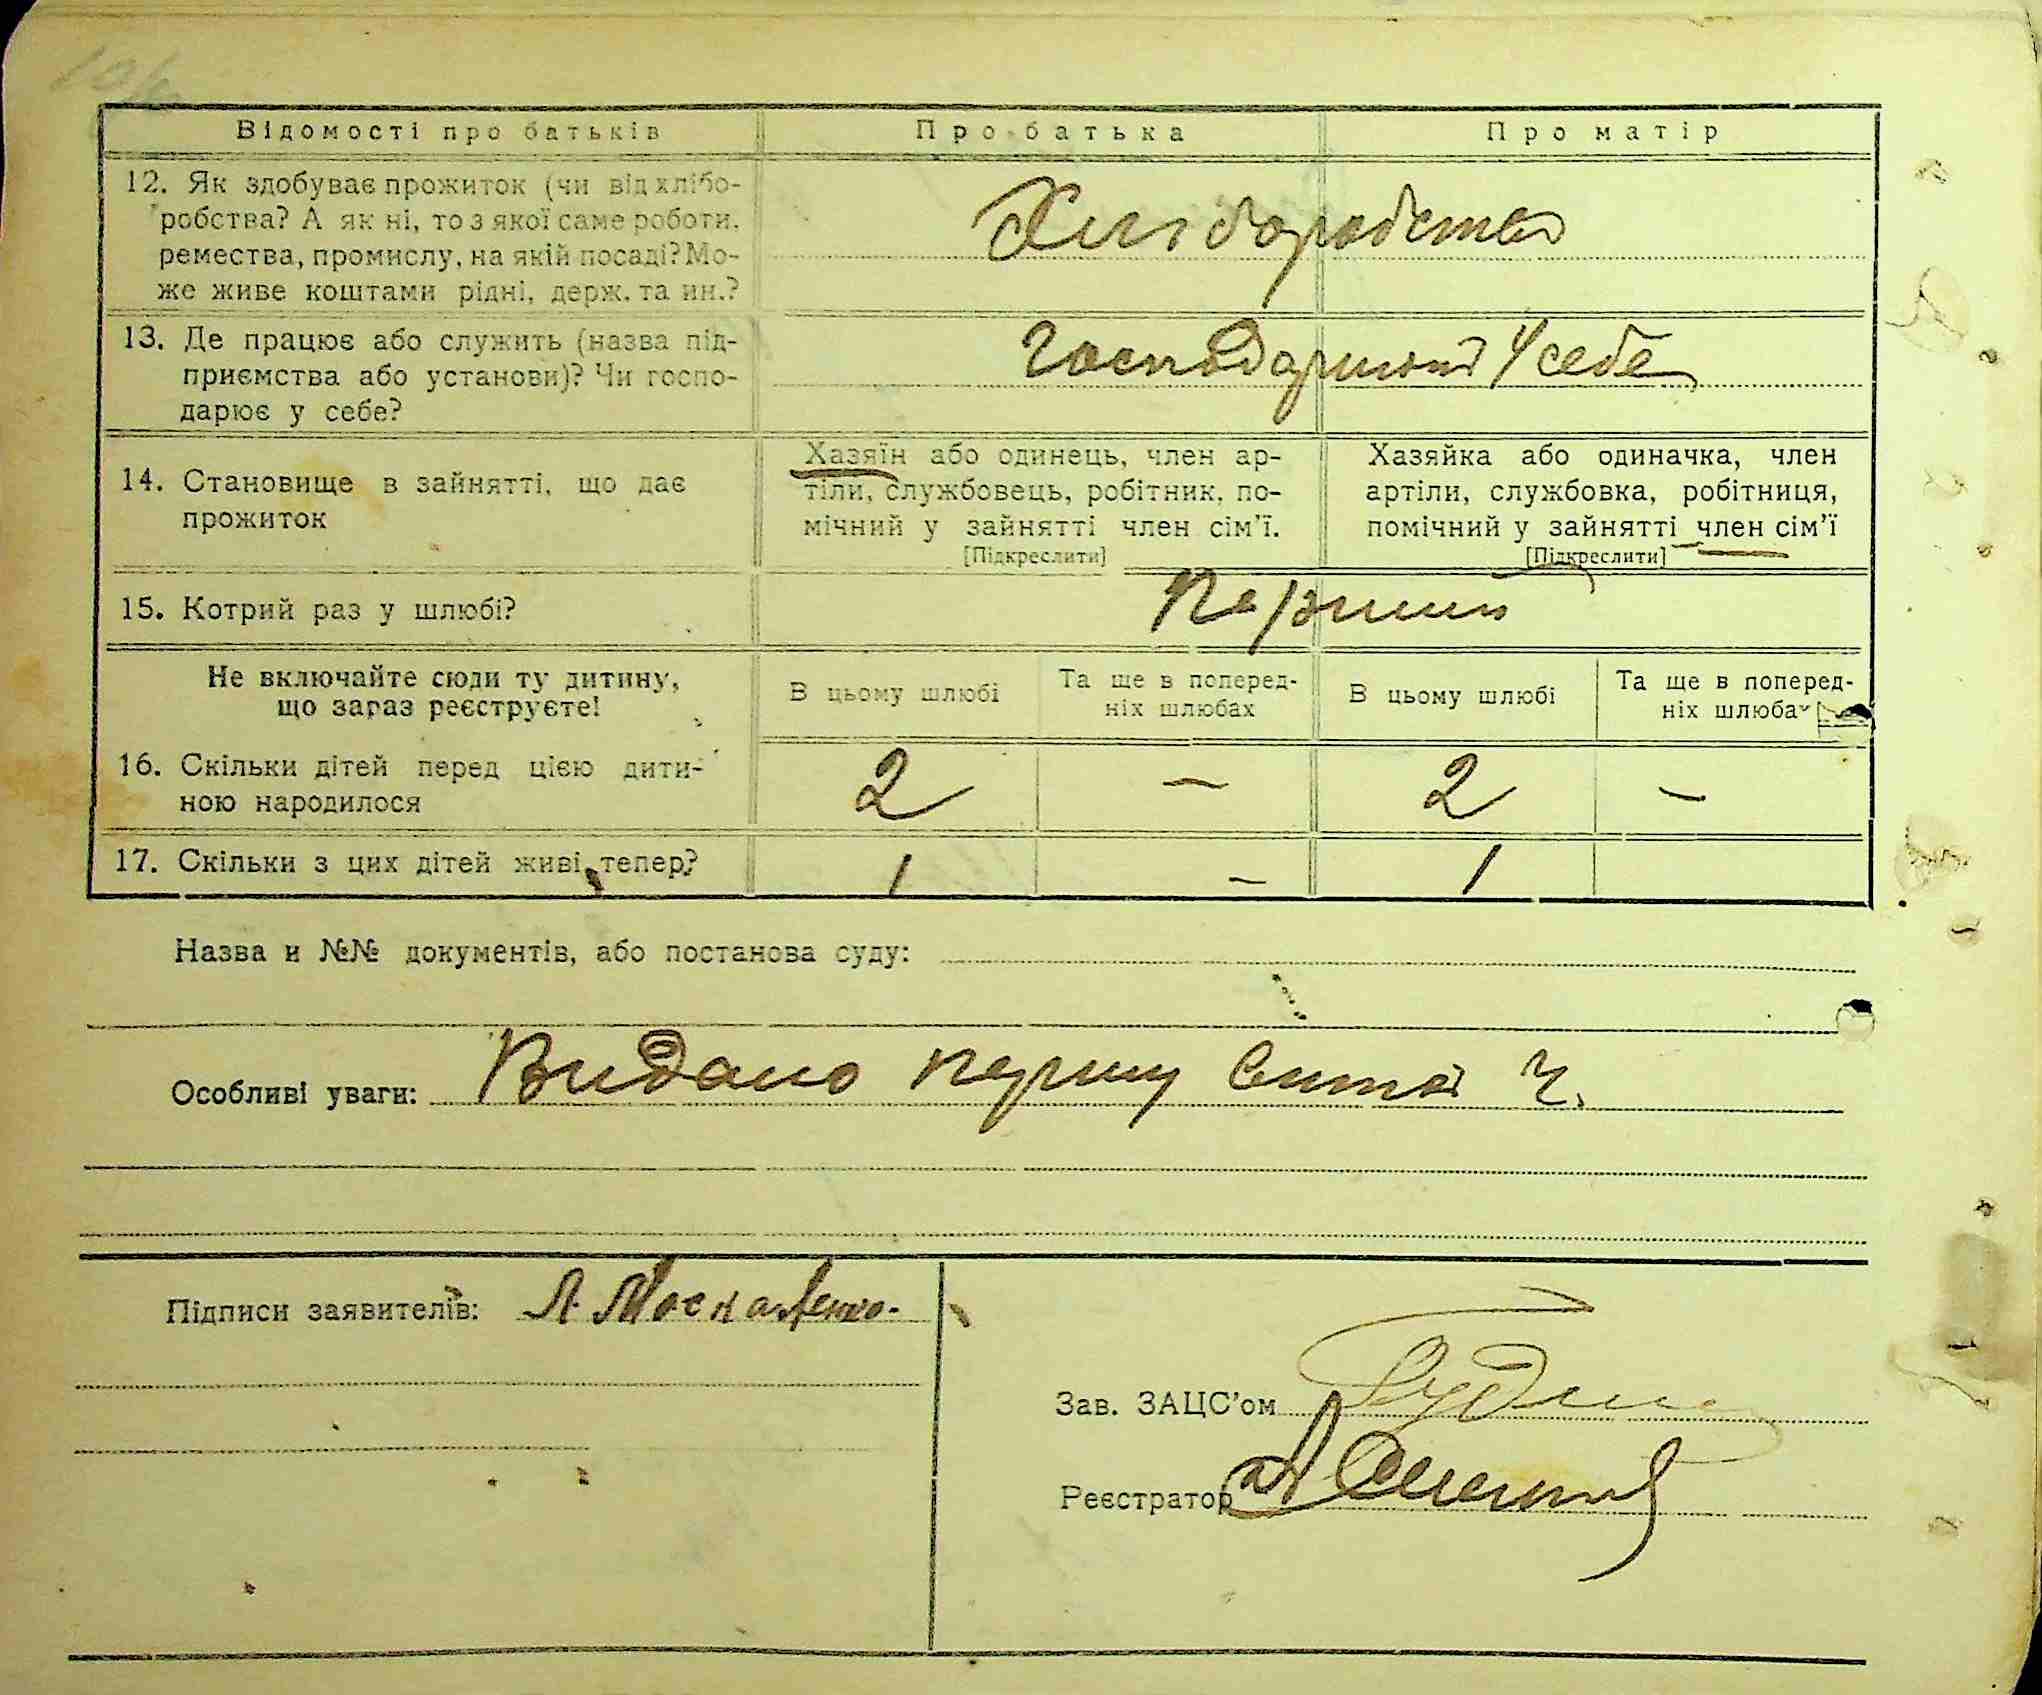 Відомості про батьків Про батька Про матір
12. Як здобуває прожиток (чи від хлібо-
робства? А як ні, то з якої саме роботи,
ремества, промислу, на якій посаді? Мо-
же живе коштами рідні, держ. та ин.?
Хліборобство
13. Де працює або служить (назва під-
приємства або установи)? Чи госпо-
дарює у себе?
у себе
14. Становище в зайнятті, що дає
прожиток
Хазяїн або одинець, член ар-
тіли, службовець, робітник, по-
мічний у зайнятті член сім'ї.
[Підкреслити]
Хазяйка або одиначка, член
артіли, службовка, робітниця,
помічний у зайнятті член сім'ї
[Підкреслити]
15. Котрий раз у шлюбі?
Перший
Не включайте сюди ту дитину,
що зараз реєструєте!
В цьому шлюбі
Та ще в поперед-
ніх шлюбах
В цьому шлюбі
Та ще в поперед-
ніх шлюбах
16. Скільки дітей перед цією дити-
ною народилося
2 — 2 —
17. Скільки з цих дітей живі тепер? 1 — 1
Назва и №№ документів, або постанова суду:
Особливі уваги: Видано першу
Підписи заявителів: Л. Москаленко.
Зав. ЗАЦС'ом
Реєстратор